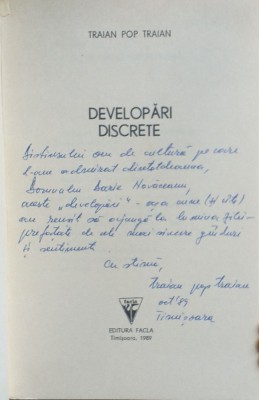 TRAIAN POP TRAIAN
DEVELOPĂRI
DISCRETE
Distinsului om de cultură pe care
l-am admirat dintotdeauna,
Domnului Darie Novăceanu,
aceste „developări” - așa cum (și cît)
au reușit să ajungă la lumina
de cele mai sincere gînduri
și sentimente.
Cu stimă,
traian pop traian
oct' 89
Timișoara
facla
EDITURA FACLA
Timișoara, 1989